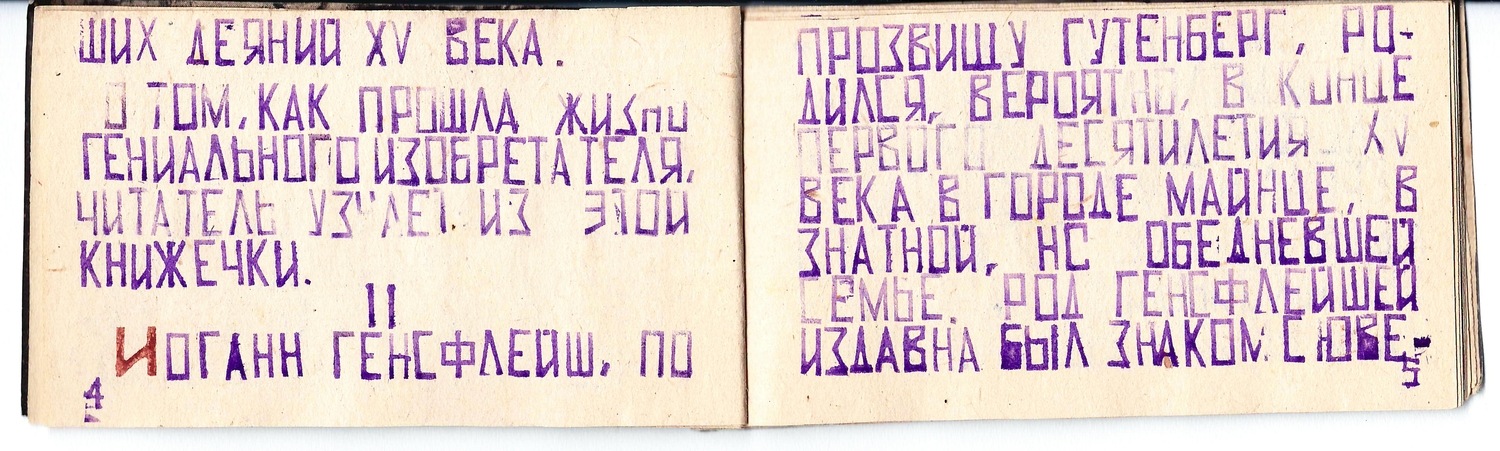 ШИХ ДЕЯНИЙ XV ВЕКА.
О ТОМ, КАК ПРОШЛА ЖИЗНИ
ГЕНИАЛЬНОГО ИЗОБРЕТАТЕЛЯ,
ЧИТАТЕЛЬ УЗНАЕТ ИЗ ЭТОЙ
КНИЖЕЧКИ.
II
ИОГАНН ГЕНСФЛЕЙШ, ПО
4
ПРОЗВИЩУ ГУТЕНБЕРГ, РО-
ДИЛСЯ, ВЕРОЯТНО, В КОНЦЕ
ПЕРВОГО ДЕСЯТИЛЕТИЯ XV
ВЕКА В ГОРОДЕ МАЙНЦЕ, В
ЗНАТНОЙ, НС ОБЕДНЕВШЕЙ
СЕМЬЕ. РОД ГЕНСФЛЕЙШЕЙ
ИЗДАВНА БЫЛ ЗНАКОМ С ЮВЕ-
5